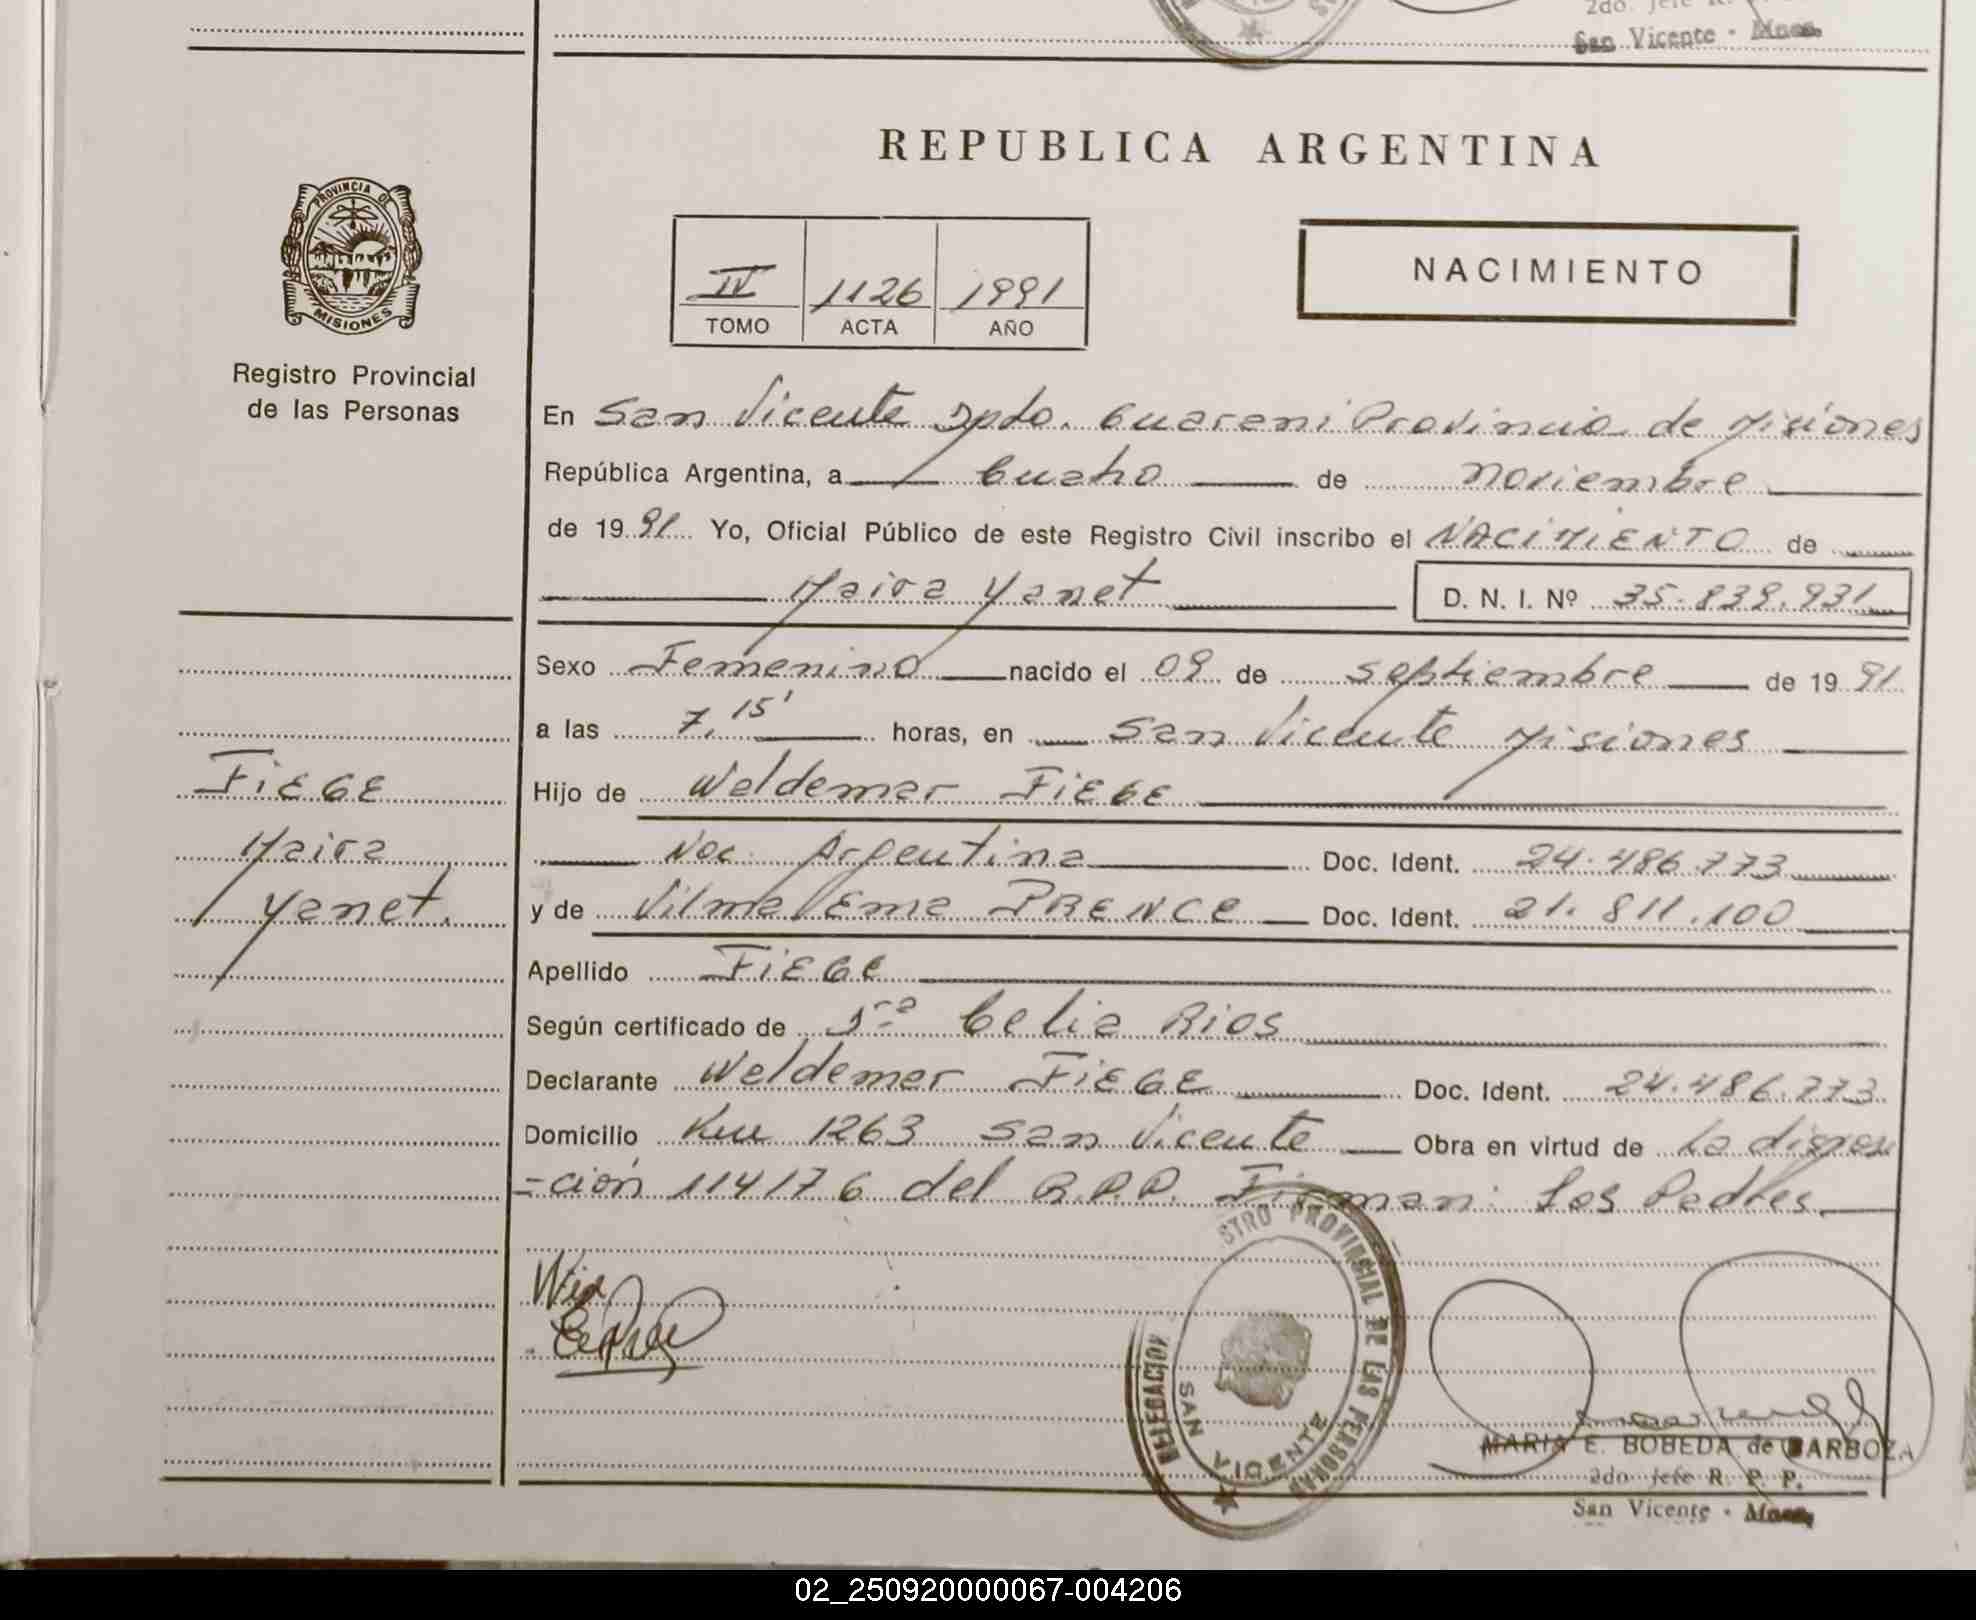 2do. Jefe R.
San Vicente - Mnes.
REPUBLICA ARGENTINA
PROVINCIA DE
MISIONES
Registro Provincial
de las Personas
IV 1126 1991
TOMO ACTA AÑO
NACIMIENTO
En San Vicente Dpto. Guarani Provincia de Misiones
República Argentina, a Cuatro de noviembre
de 1991 Yo, Oficial Público de este Registro Civil inscribo el NACIMIENTO de
Maira Yanet D. N. I. Nº 35.839.931
Sexo Femenino nacido el 09 de septiembre de 1991
a las 7,15' horas, en San Vicente Misiones
FIEGE
Maira
Yanet.
Hijo de Weldemar FIEGE
Nac. Argentina Doc. Ident. 24.486.773
y de Vilma Ema PRENCE Doc. Ident. 21.811.100
Apellido FIEGE
Según certificado de Sra Celia Rios
Declarante Weldemar FIEGE Doc. Ident. 24.486.773
Domicilio Km 1263 San Vicente Obra en virtud de La disposi
-ción 114176 del R.P.P. Firman: Los Padres.
STRO PROVINCIAL DE LAS PERSONAS
DELEGACION
SAN VICENTE
MARIA E. BOBEDA de BARBOZA
2do Jefe R. P. P.
San Vicente - Mnes.
02_250920000067-004206